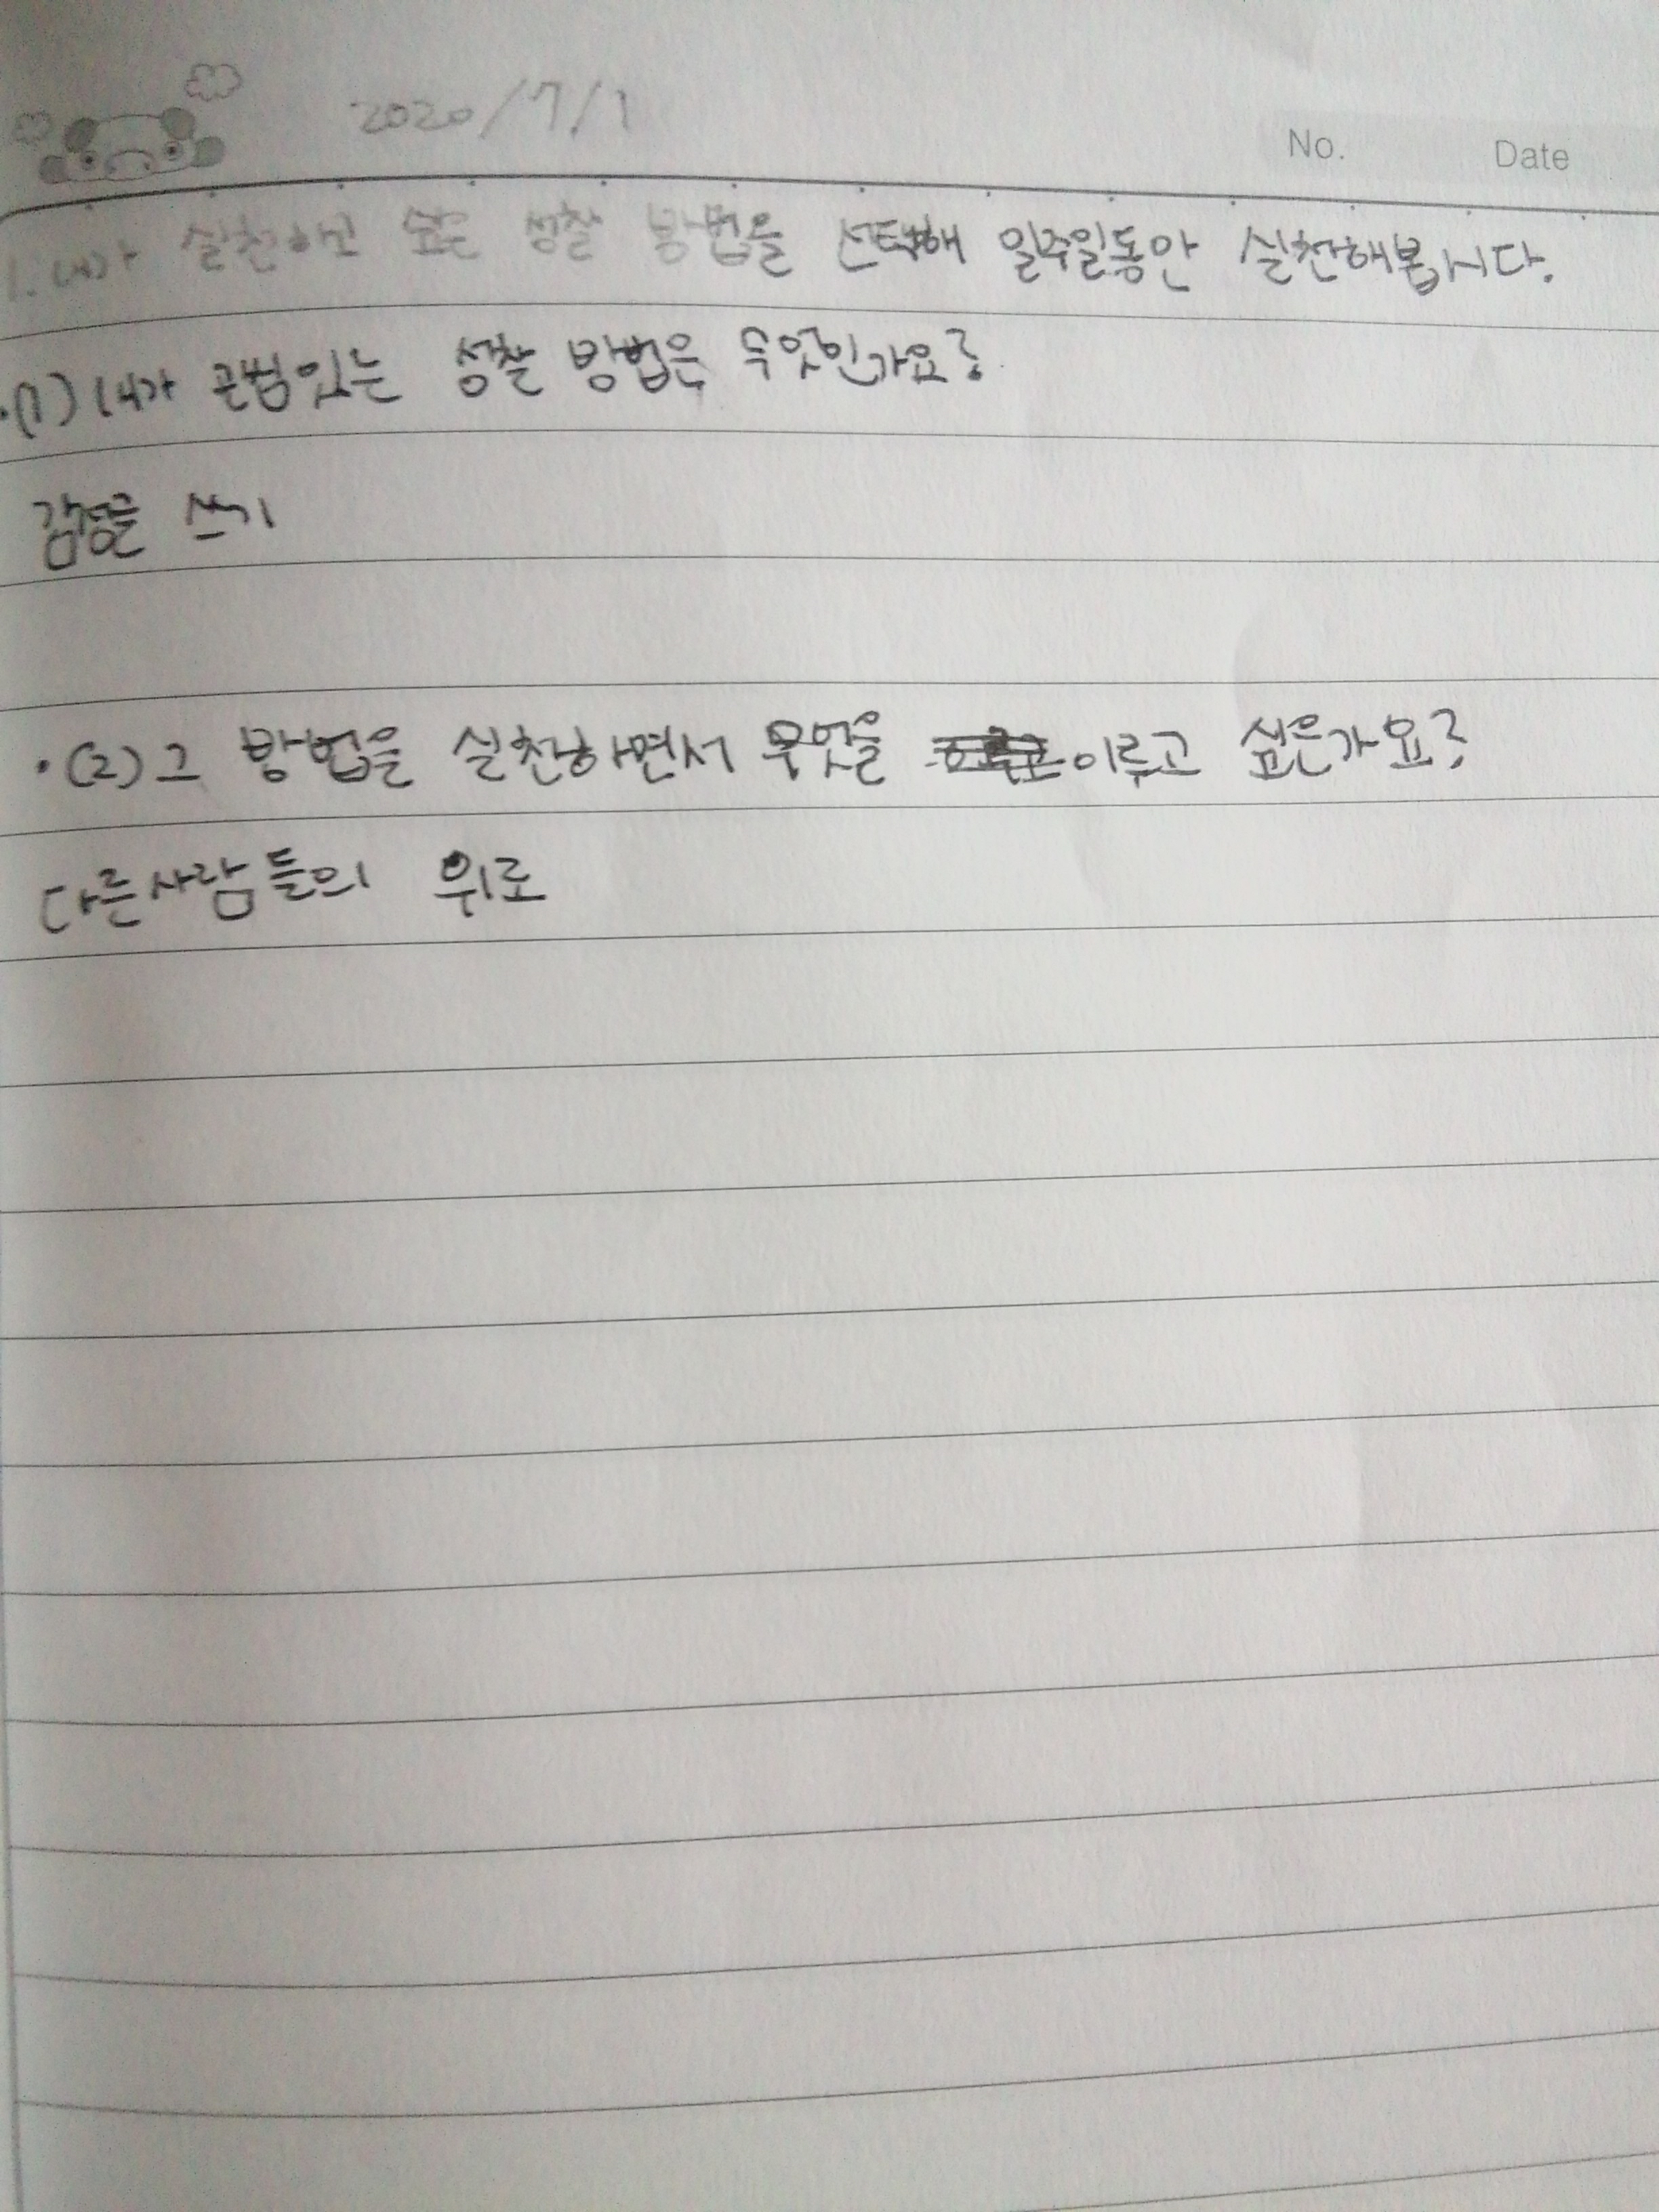 2020/7/1
No. Date
1. 내가 실천하고 싶은 성찰 방법을 선택해 일주일동안 실천해봅시다.
·(1) 내가 관심있는 성찰 방법은 무엇인가요?
감정을 쓰기
·(2) 그 방법을 실천하면서 무엇을 이루고 싶은가요?
다른사람들의 위로